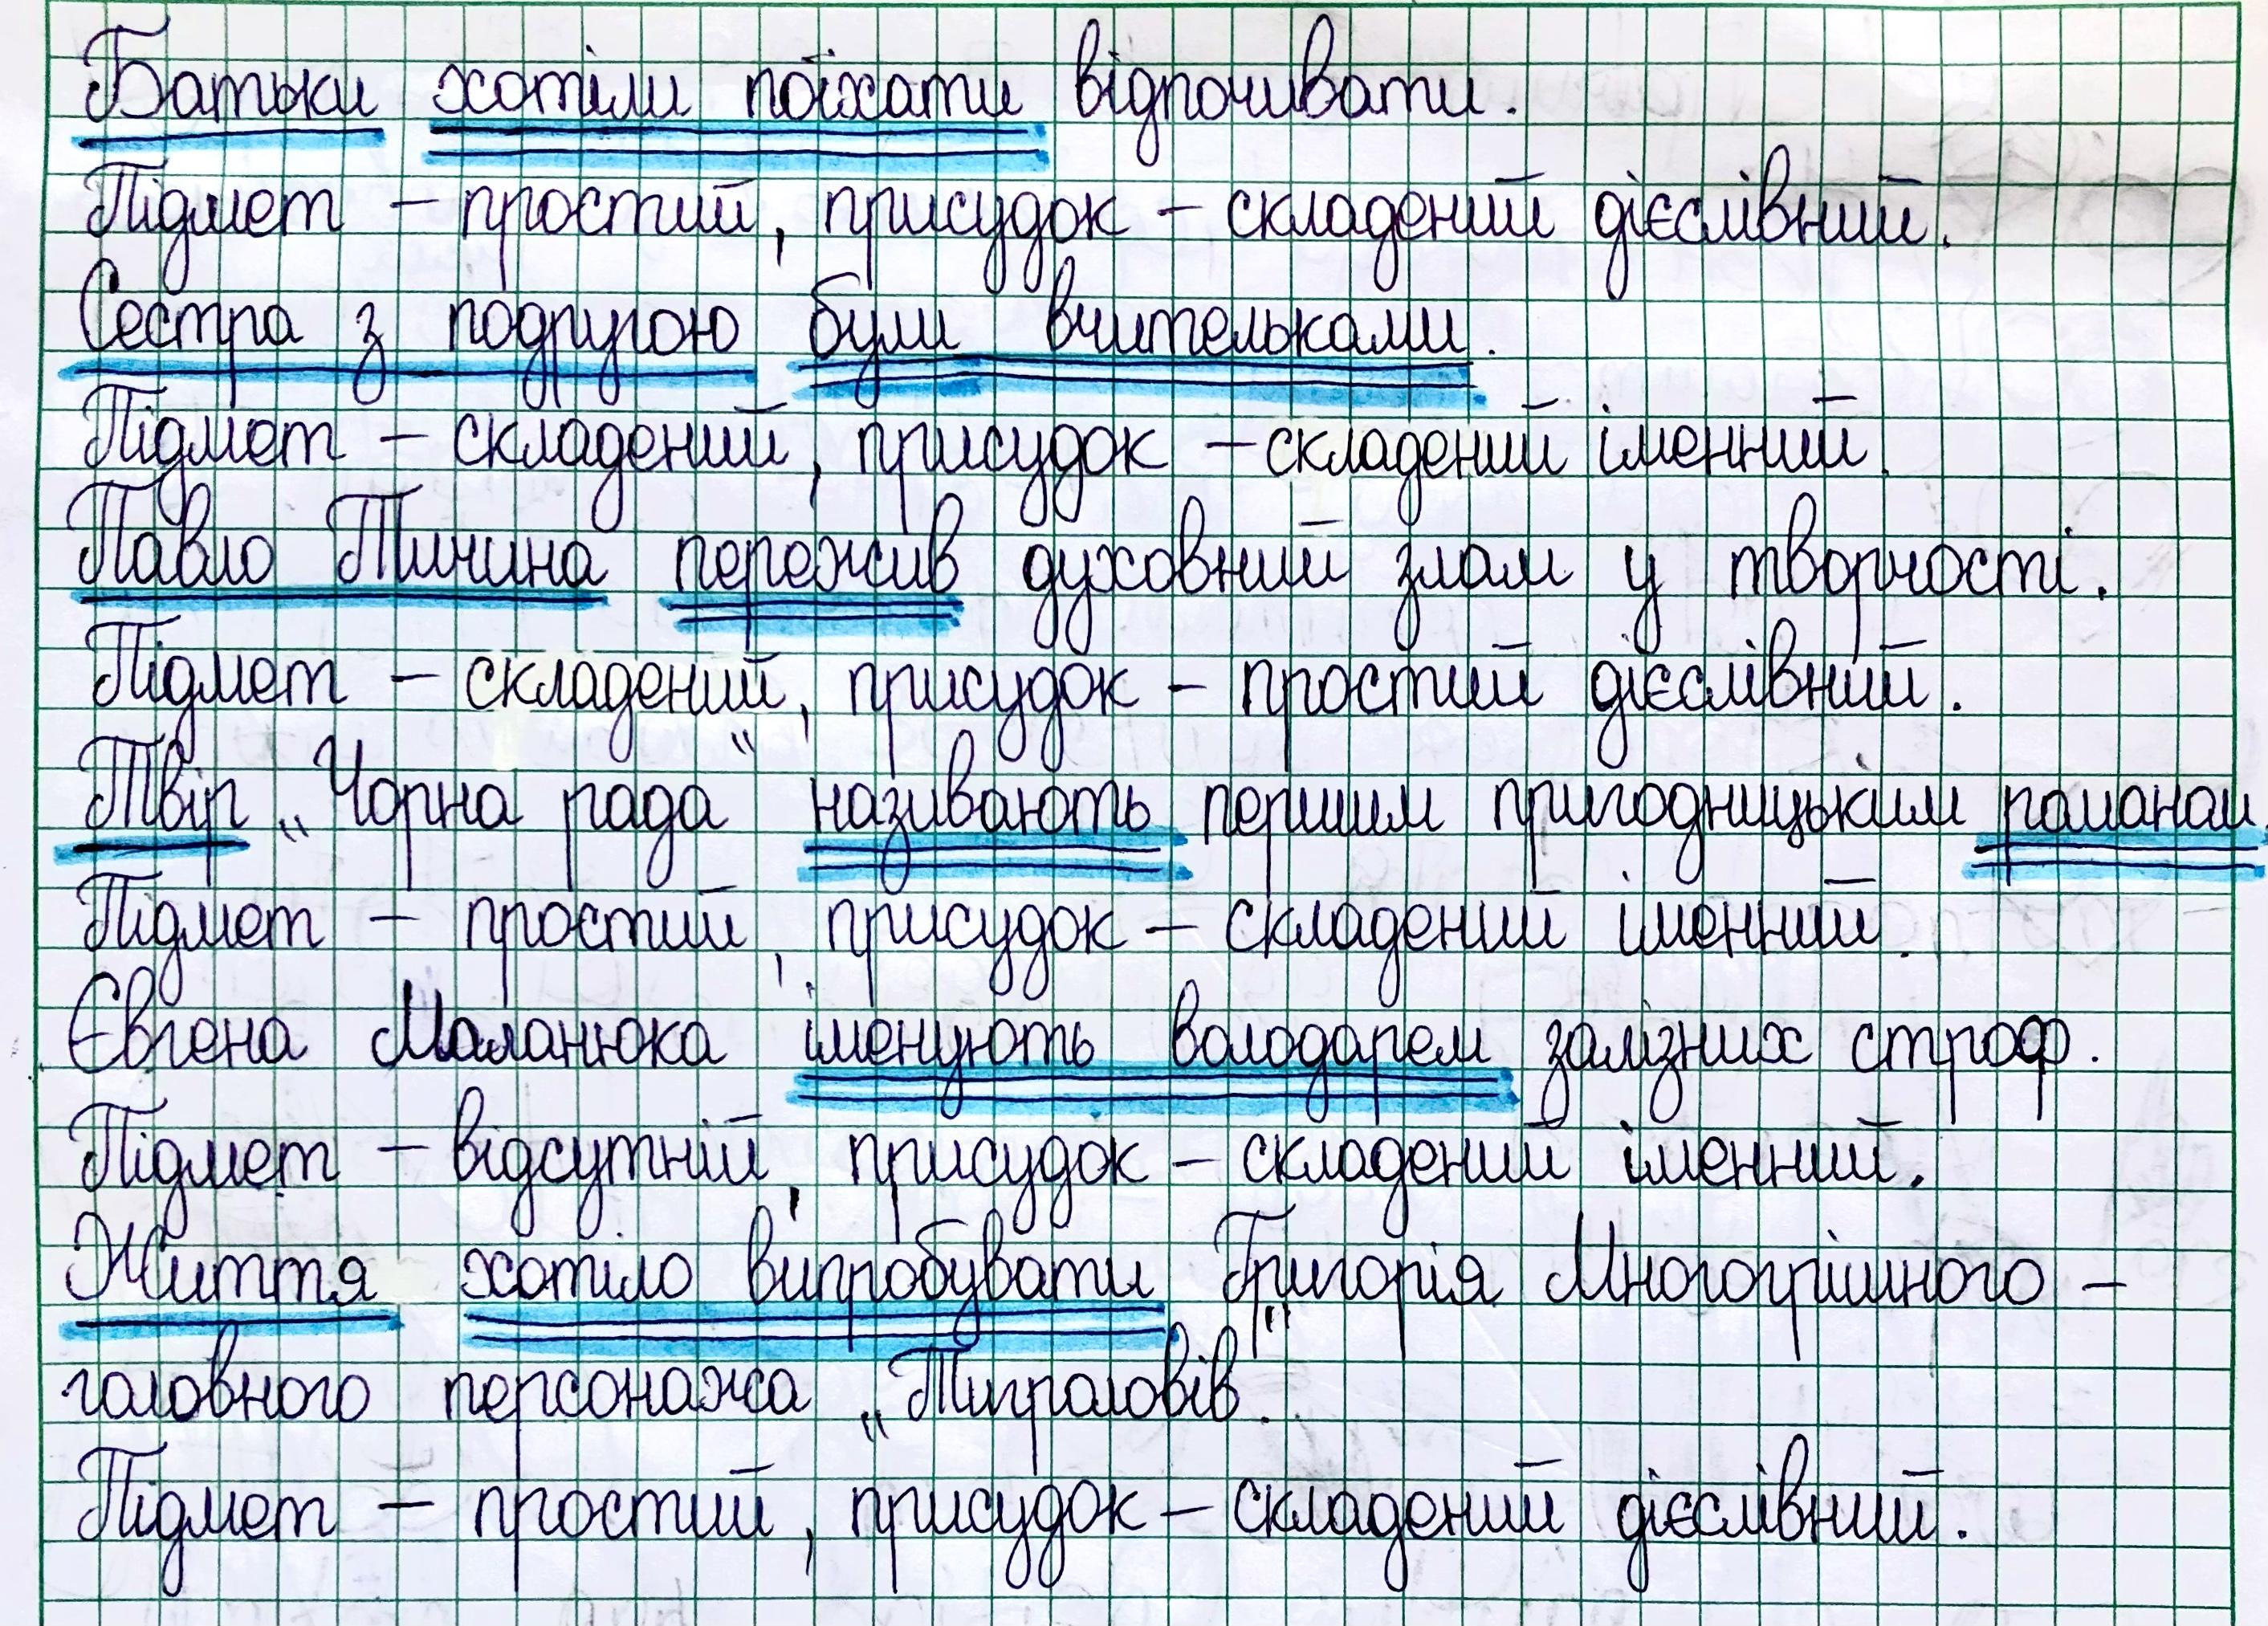 Батьки хотіли поїхати відпочивати.
Підмет – простий, присудок – складений дієслівний.
Сестра з подругою були вчительками.
Підмет – складений, присудок – складений іменний.
Павло Тичина пережив духовний злам у творчості.
Підмет – складений, присудок – простий дієслівний.
Твір „Чорна рада“ називають першим пригодницьким романом.
Підмет – простий, присудок – складений іменний.
Євгена Маланюка іменують володарем залізних строф.
Підмет – відсутній, присудок – складений іменний.
Життя хотіло випробувати Григорія Многогрішного –
головного персонажа „Тигроловів".
Підмет – простий, присудок – складений дієслівний.